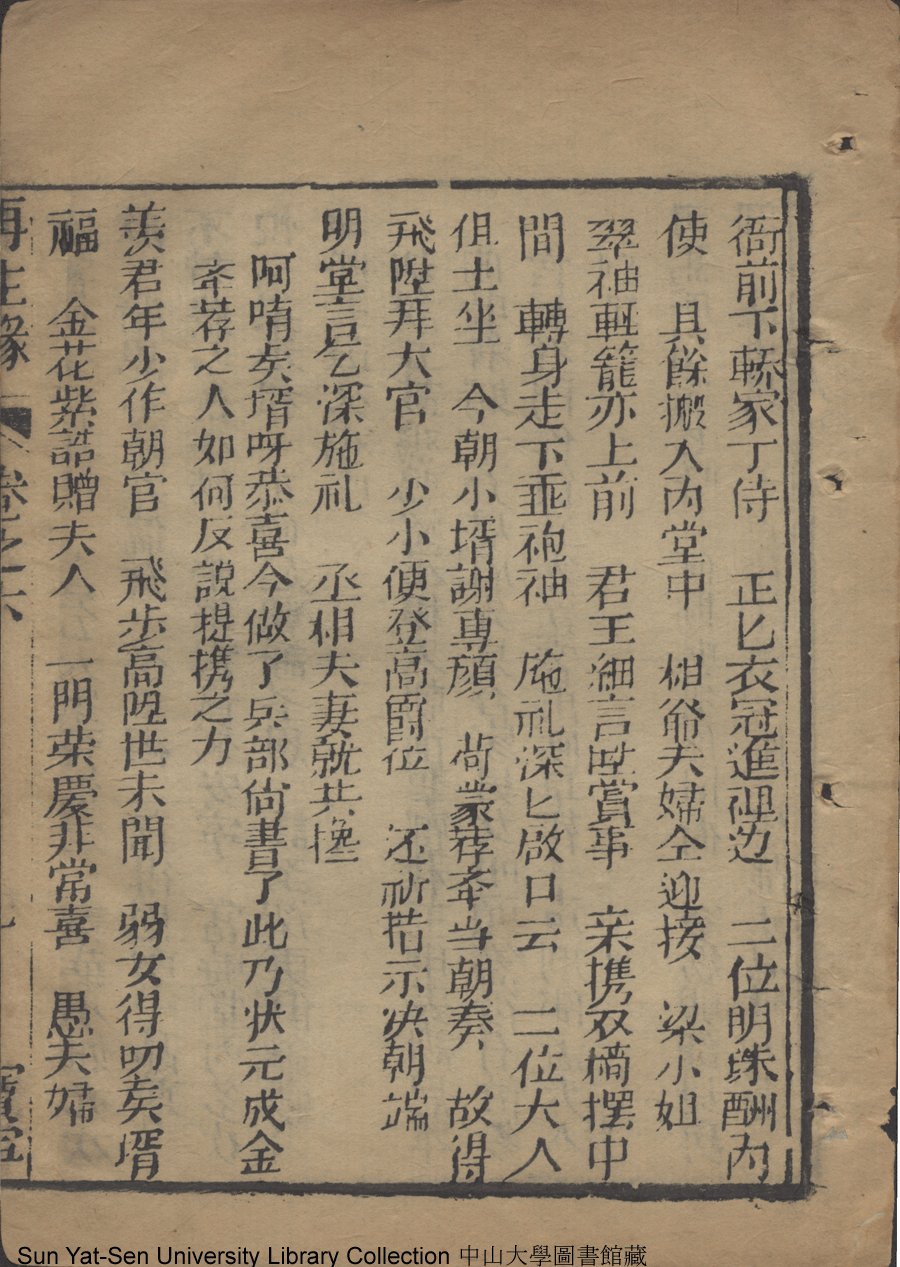 衙前下轎家丁侍　正匕衣冠進裡边　二位明珠酬内
使　具餘搬入内堂中　相爺夫婦仝迎接　梁小姐
翠袖輕籠亦上前　君王細言陞賞事　亲携双椅摆中
間　轉身走下垂袍袖　施礼深匕啟口云　二位大人
但土坐　今朝小壻謝專顔　荷蒙荐夲当朝奏　故得
飛陞拜大官　少小便登高爵位　还祈指示决朝端
明堂言乞深施礼　丞相夫妻就共搀
阿唷矣壻呀恭喜今做了兵部尙書了此乃状元成金
夲荐之人如何反說提携之力
羡君年少作朝官　飛步高陞世未聞　弱女得叨矣壻
福　金花紫誥贈夫人　一門荣慶非常喜　愚夫婦
再生缘　卷之六
Sun Yat-Sen University Library Collection 中山大學圖書館藏